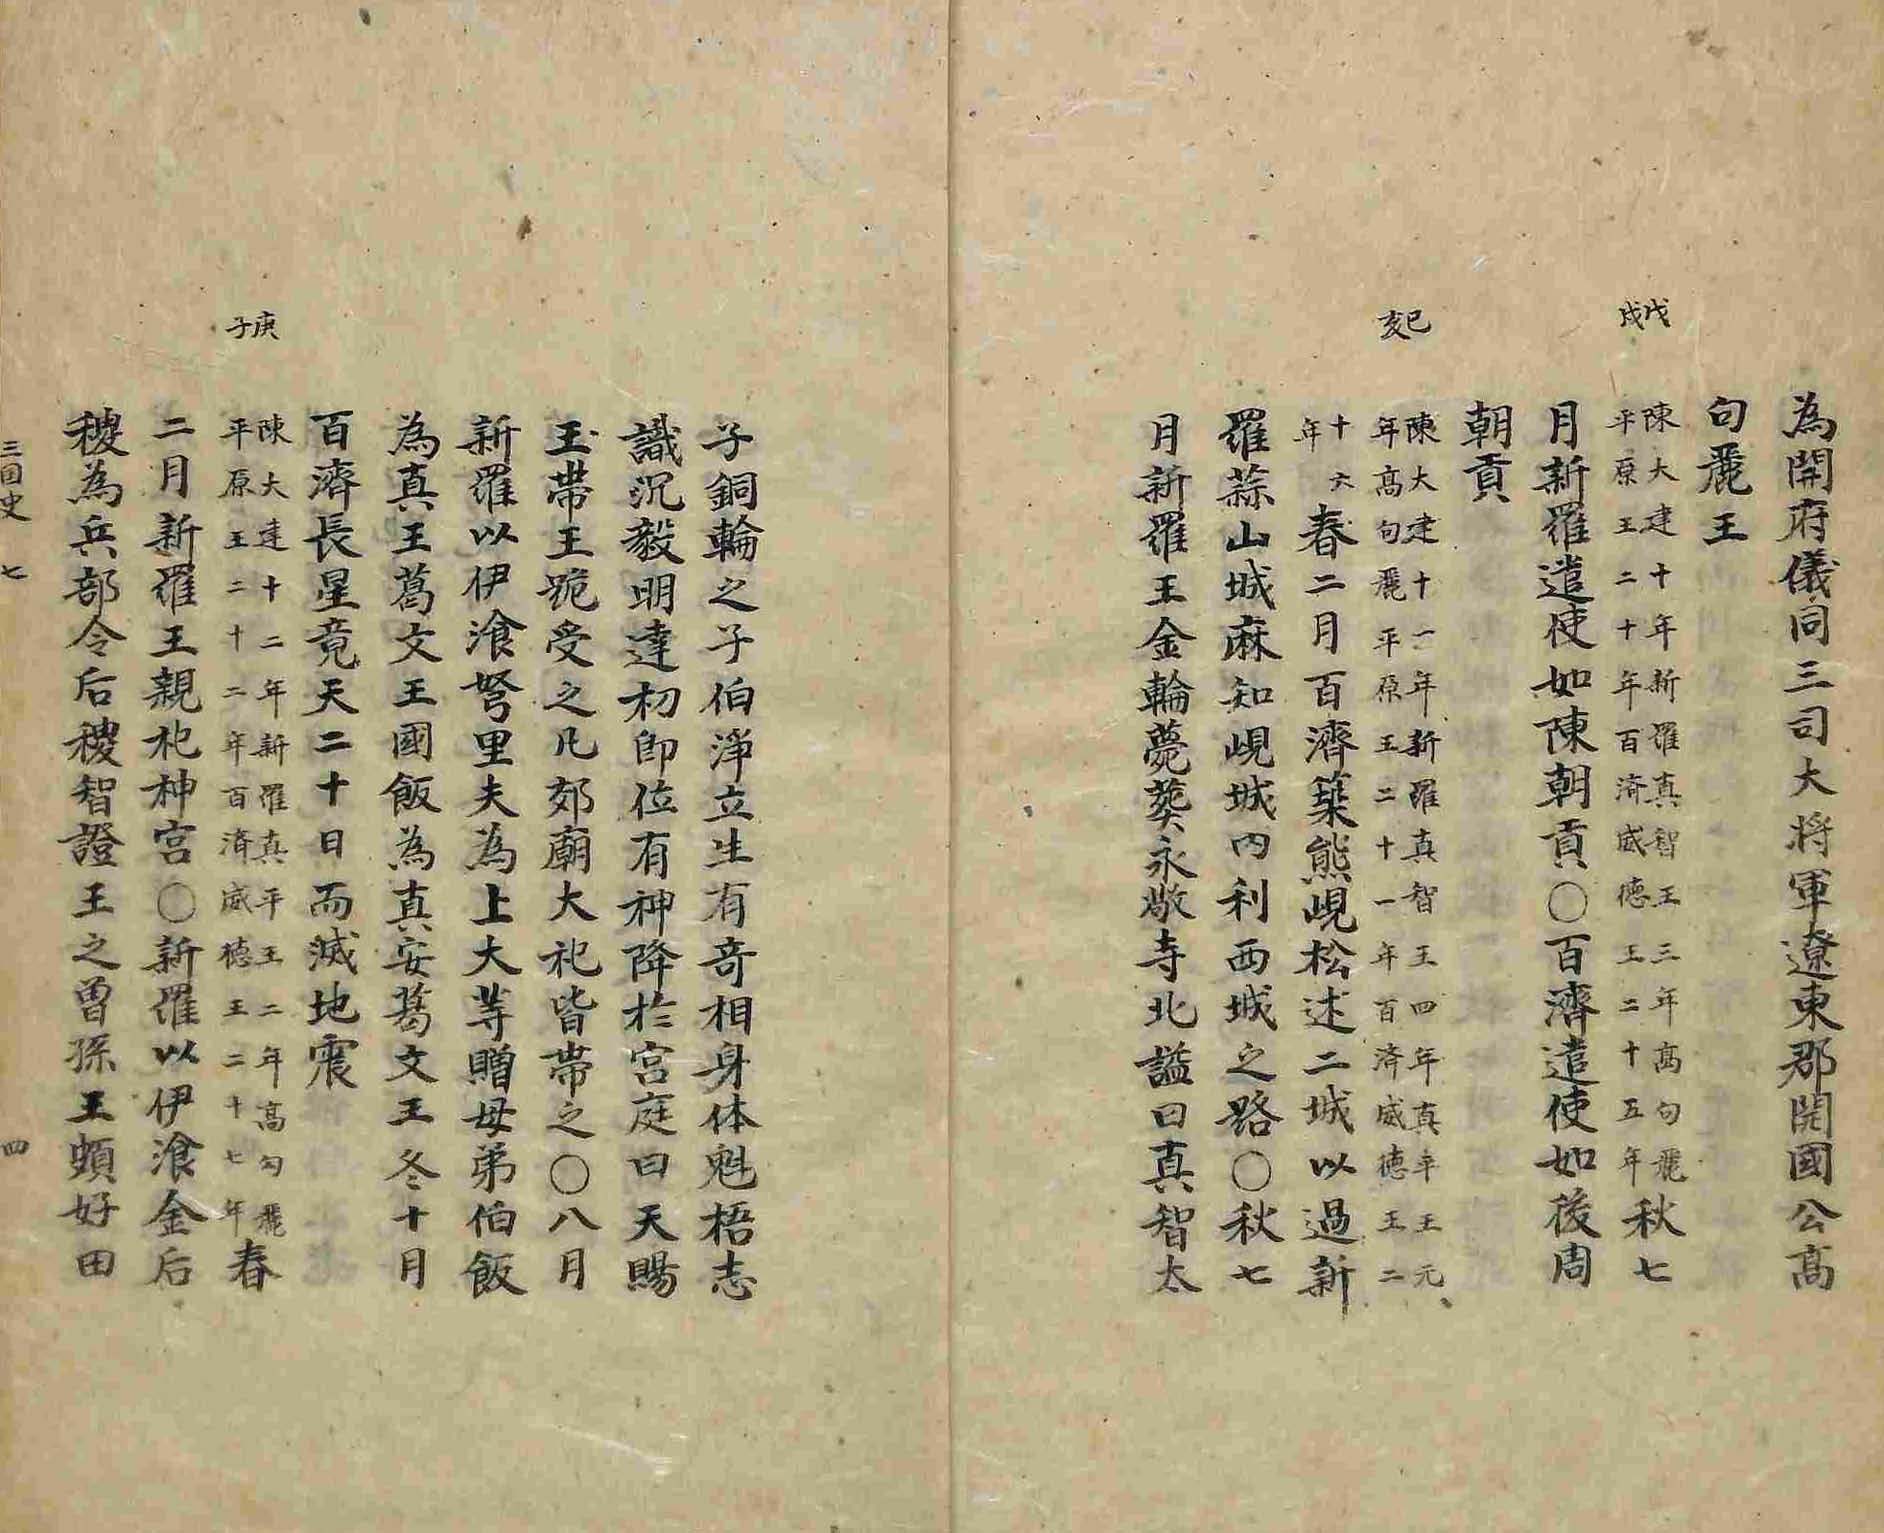 為開府儀同三司大將軍遼東郡開國公高
句麗王
戊戌
陳大建十年新羅真智王三年高句麗
平原王二十年百済威德王二十五年
秋七
月新羅遣使如陳朝貢○百濟遣使如後周
朝貢
己亥
陳大建十一年新羅真智王四年真平王元
年高句麗平原王二十一年百済威德王二
十六
年
春二月百濟築熊峴松述二城以過新
羅蒜山城麻知峴城內利西城之路○秋七
月新羅王金輪薨葬永敬寺北謚曰真智太
子銅輪之子伯淨立生有奇相身体魁梧志
識沉毅明達初卽位有神降於宮庭曰天賜
玉帶王跪受之凡郊廟大祀皆帶之○八月
新羅以伊湌弩里夫為上大等贈母弟伯飯
為真王葛文王國飯為真安葛文王冬十月
百濟長星竟天二十日而滅地震
庚子
陳大建十二年新羅真平王二年高勾麗
平原王二十二年百済威德王二十七年
春
二月新羅王親祀神宮○新羅以伊湌金后
稷為兵部令后稷智證王之曽孫王頗好田
三国史 七 四